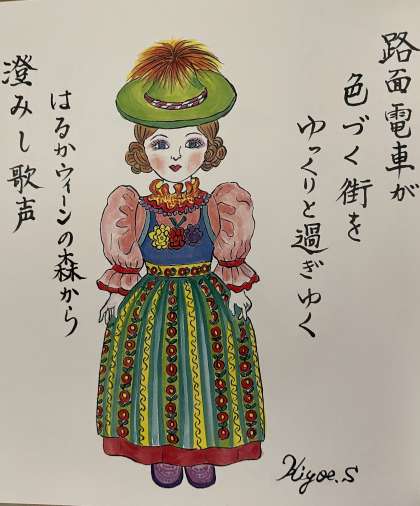 路面電車が
色づく街を
ゆっくりと過ぎゆく
はるかウィーンの森から
澄みし歌声
Kiyoe.S